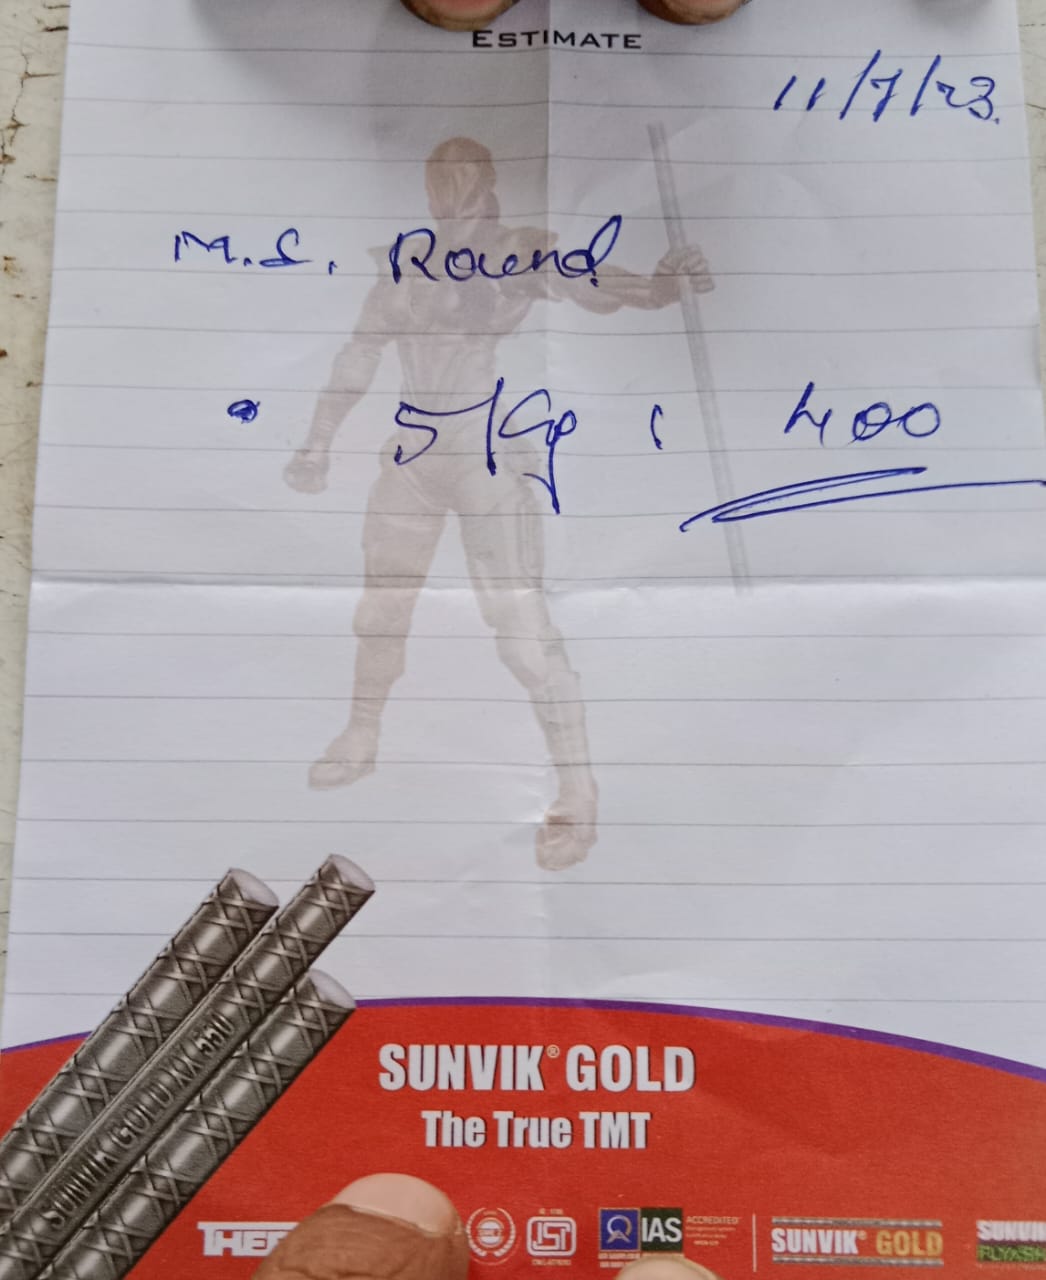 ESTIMATE
11/7/23.
M.S. Round
5 Kg : 400
SUNVIK GOLD XX 550
SUNVIK® GOLD
The True TMT
THER
ISI
IAS ACCREDITED
SUNVIK® GOLD